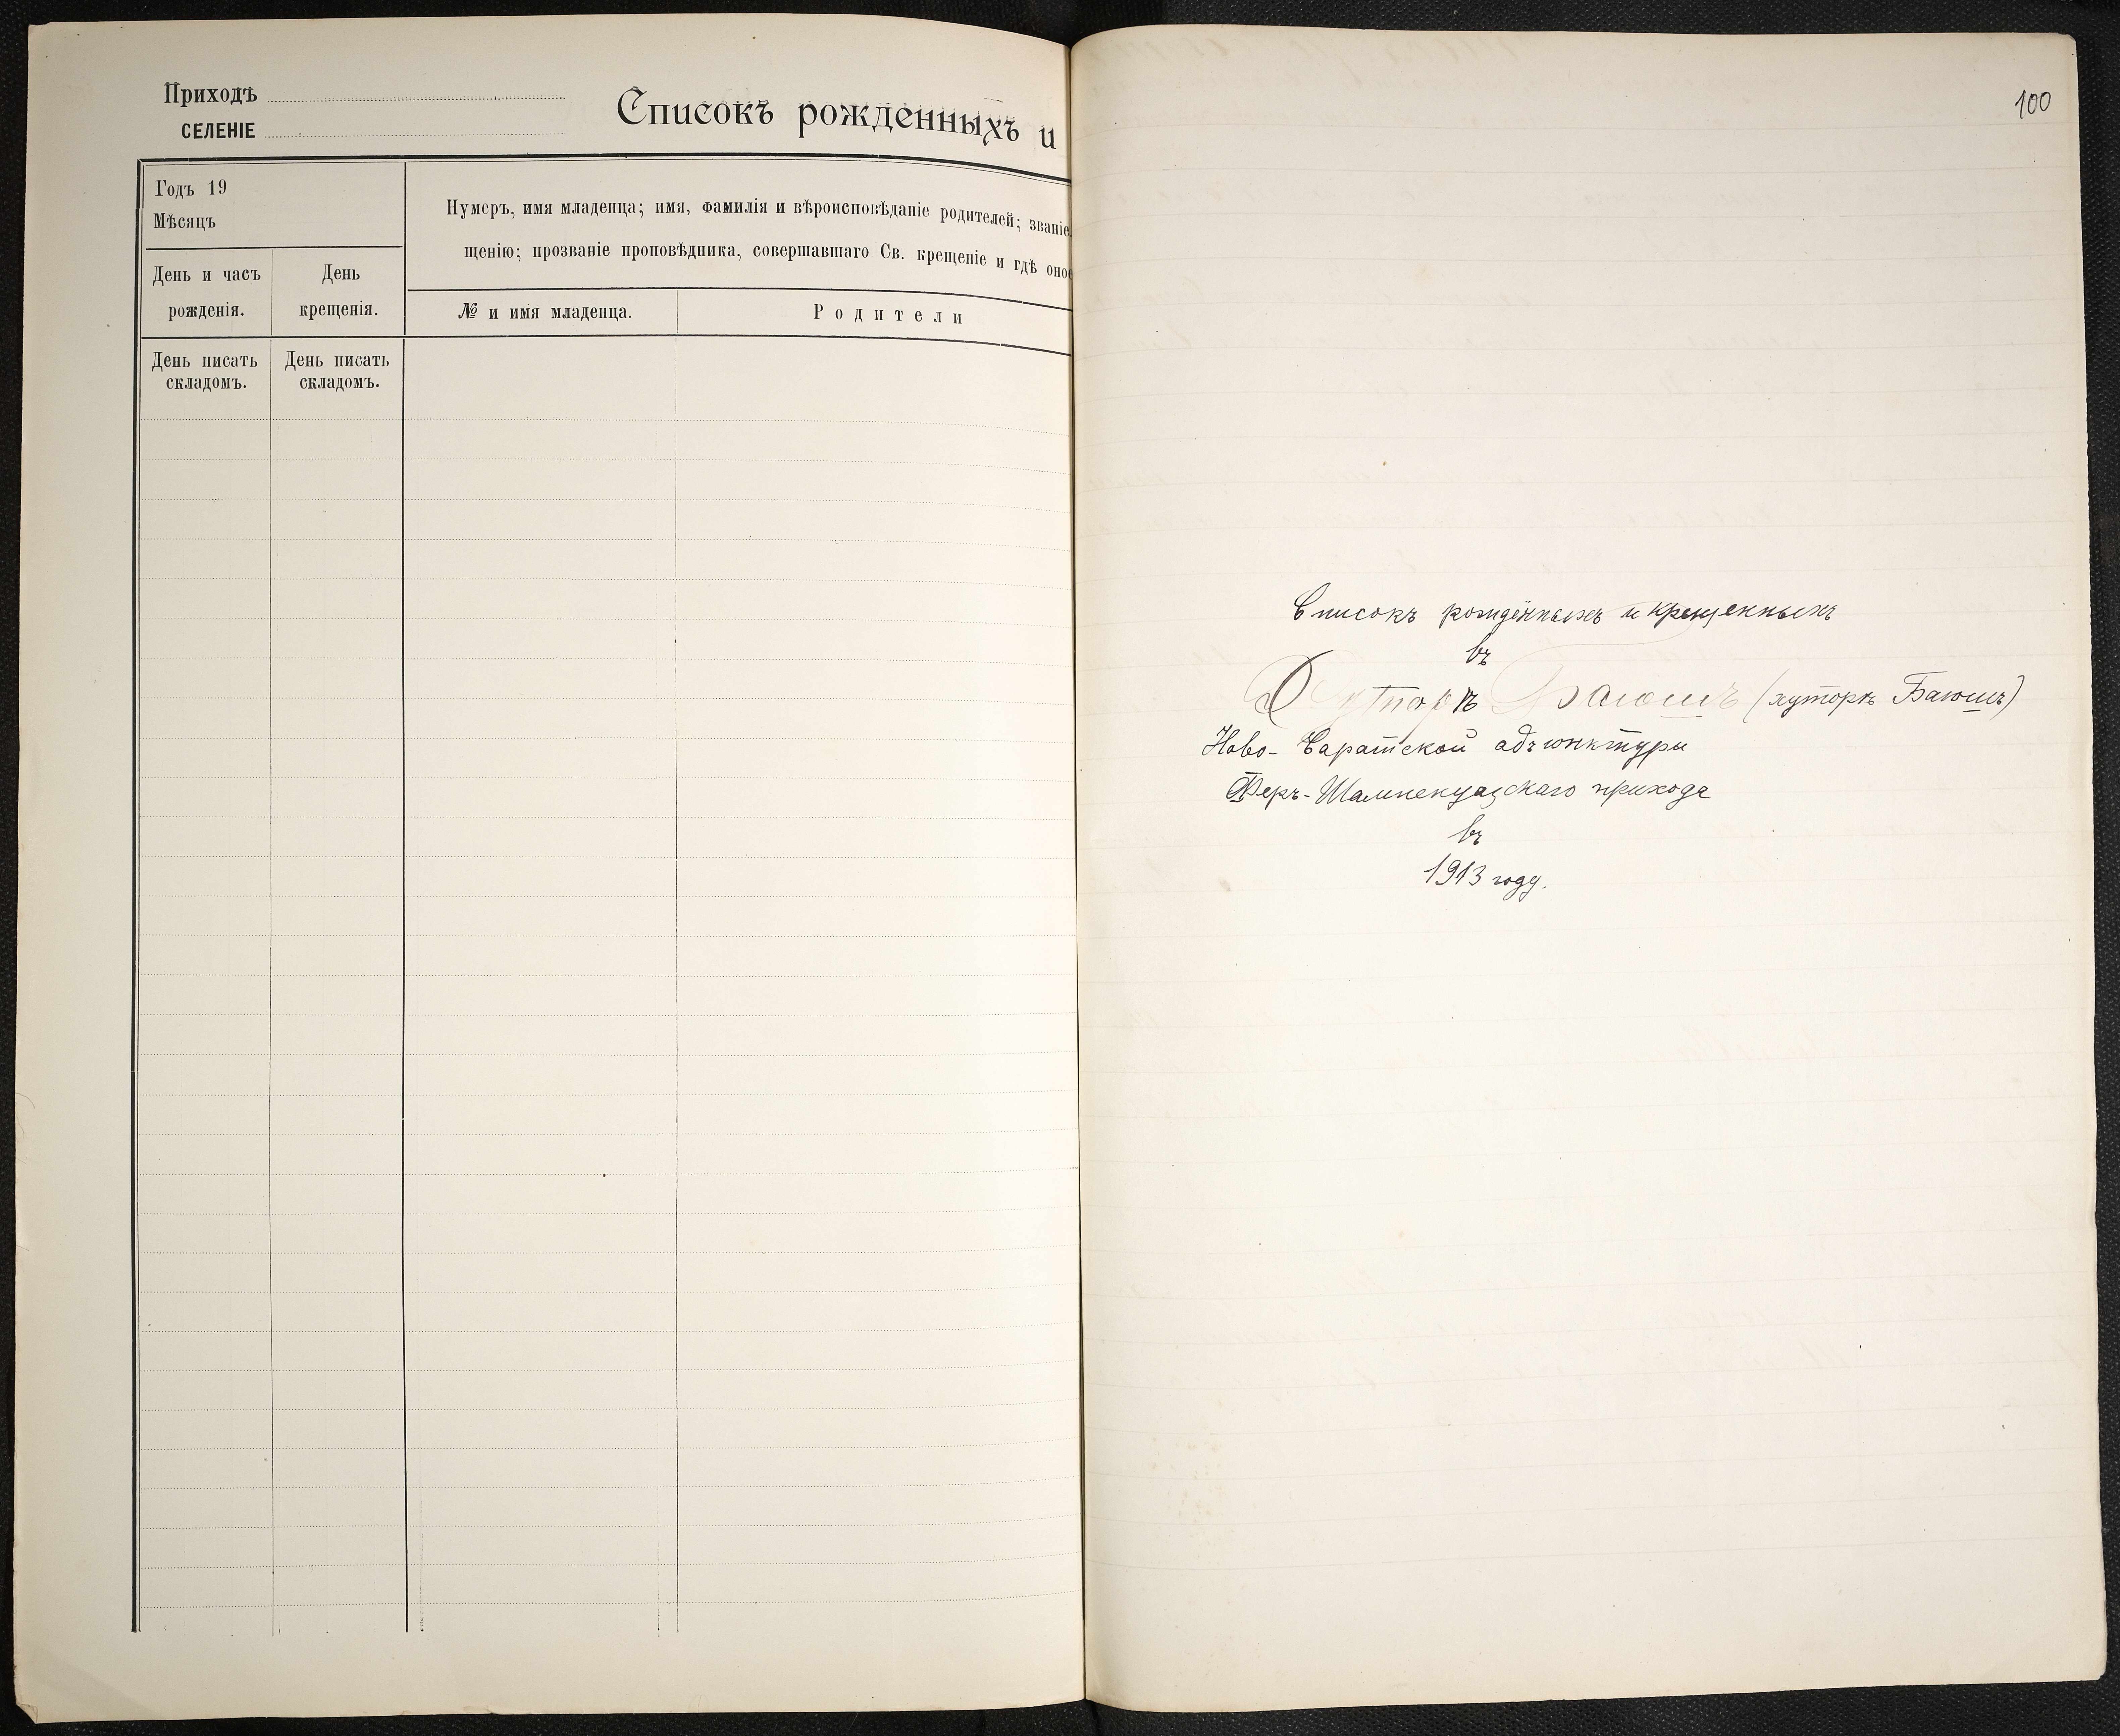 Приходъ
СЕЛЕНІЕ
Списокъ рожденныхъ и
Годъ 19
Мѣсяцъ
Нумеръ, имя младенца; имя, фамилія и вѣроисповѣданіе родителей; званіе
щенію; прозваніе проповѣдника, совершавшаго Св. крещеніе и гдѣ оное
День и часъ рожденія.
День крещенія.
№ и имя младенца.
Родители
День писать складомъ.
День писать складомъ.
100
Списокъ рождённыхъ и крещенныхъ
въ
Хуторѣ Баюшъ (хуторѣ Баюшъ)
Ново-Саратской адъюнктуры
Феръ-Шампенуазскаго прихода
въ
1913 году.